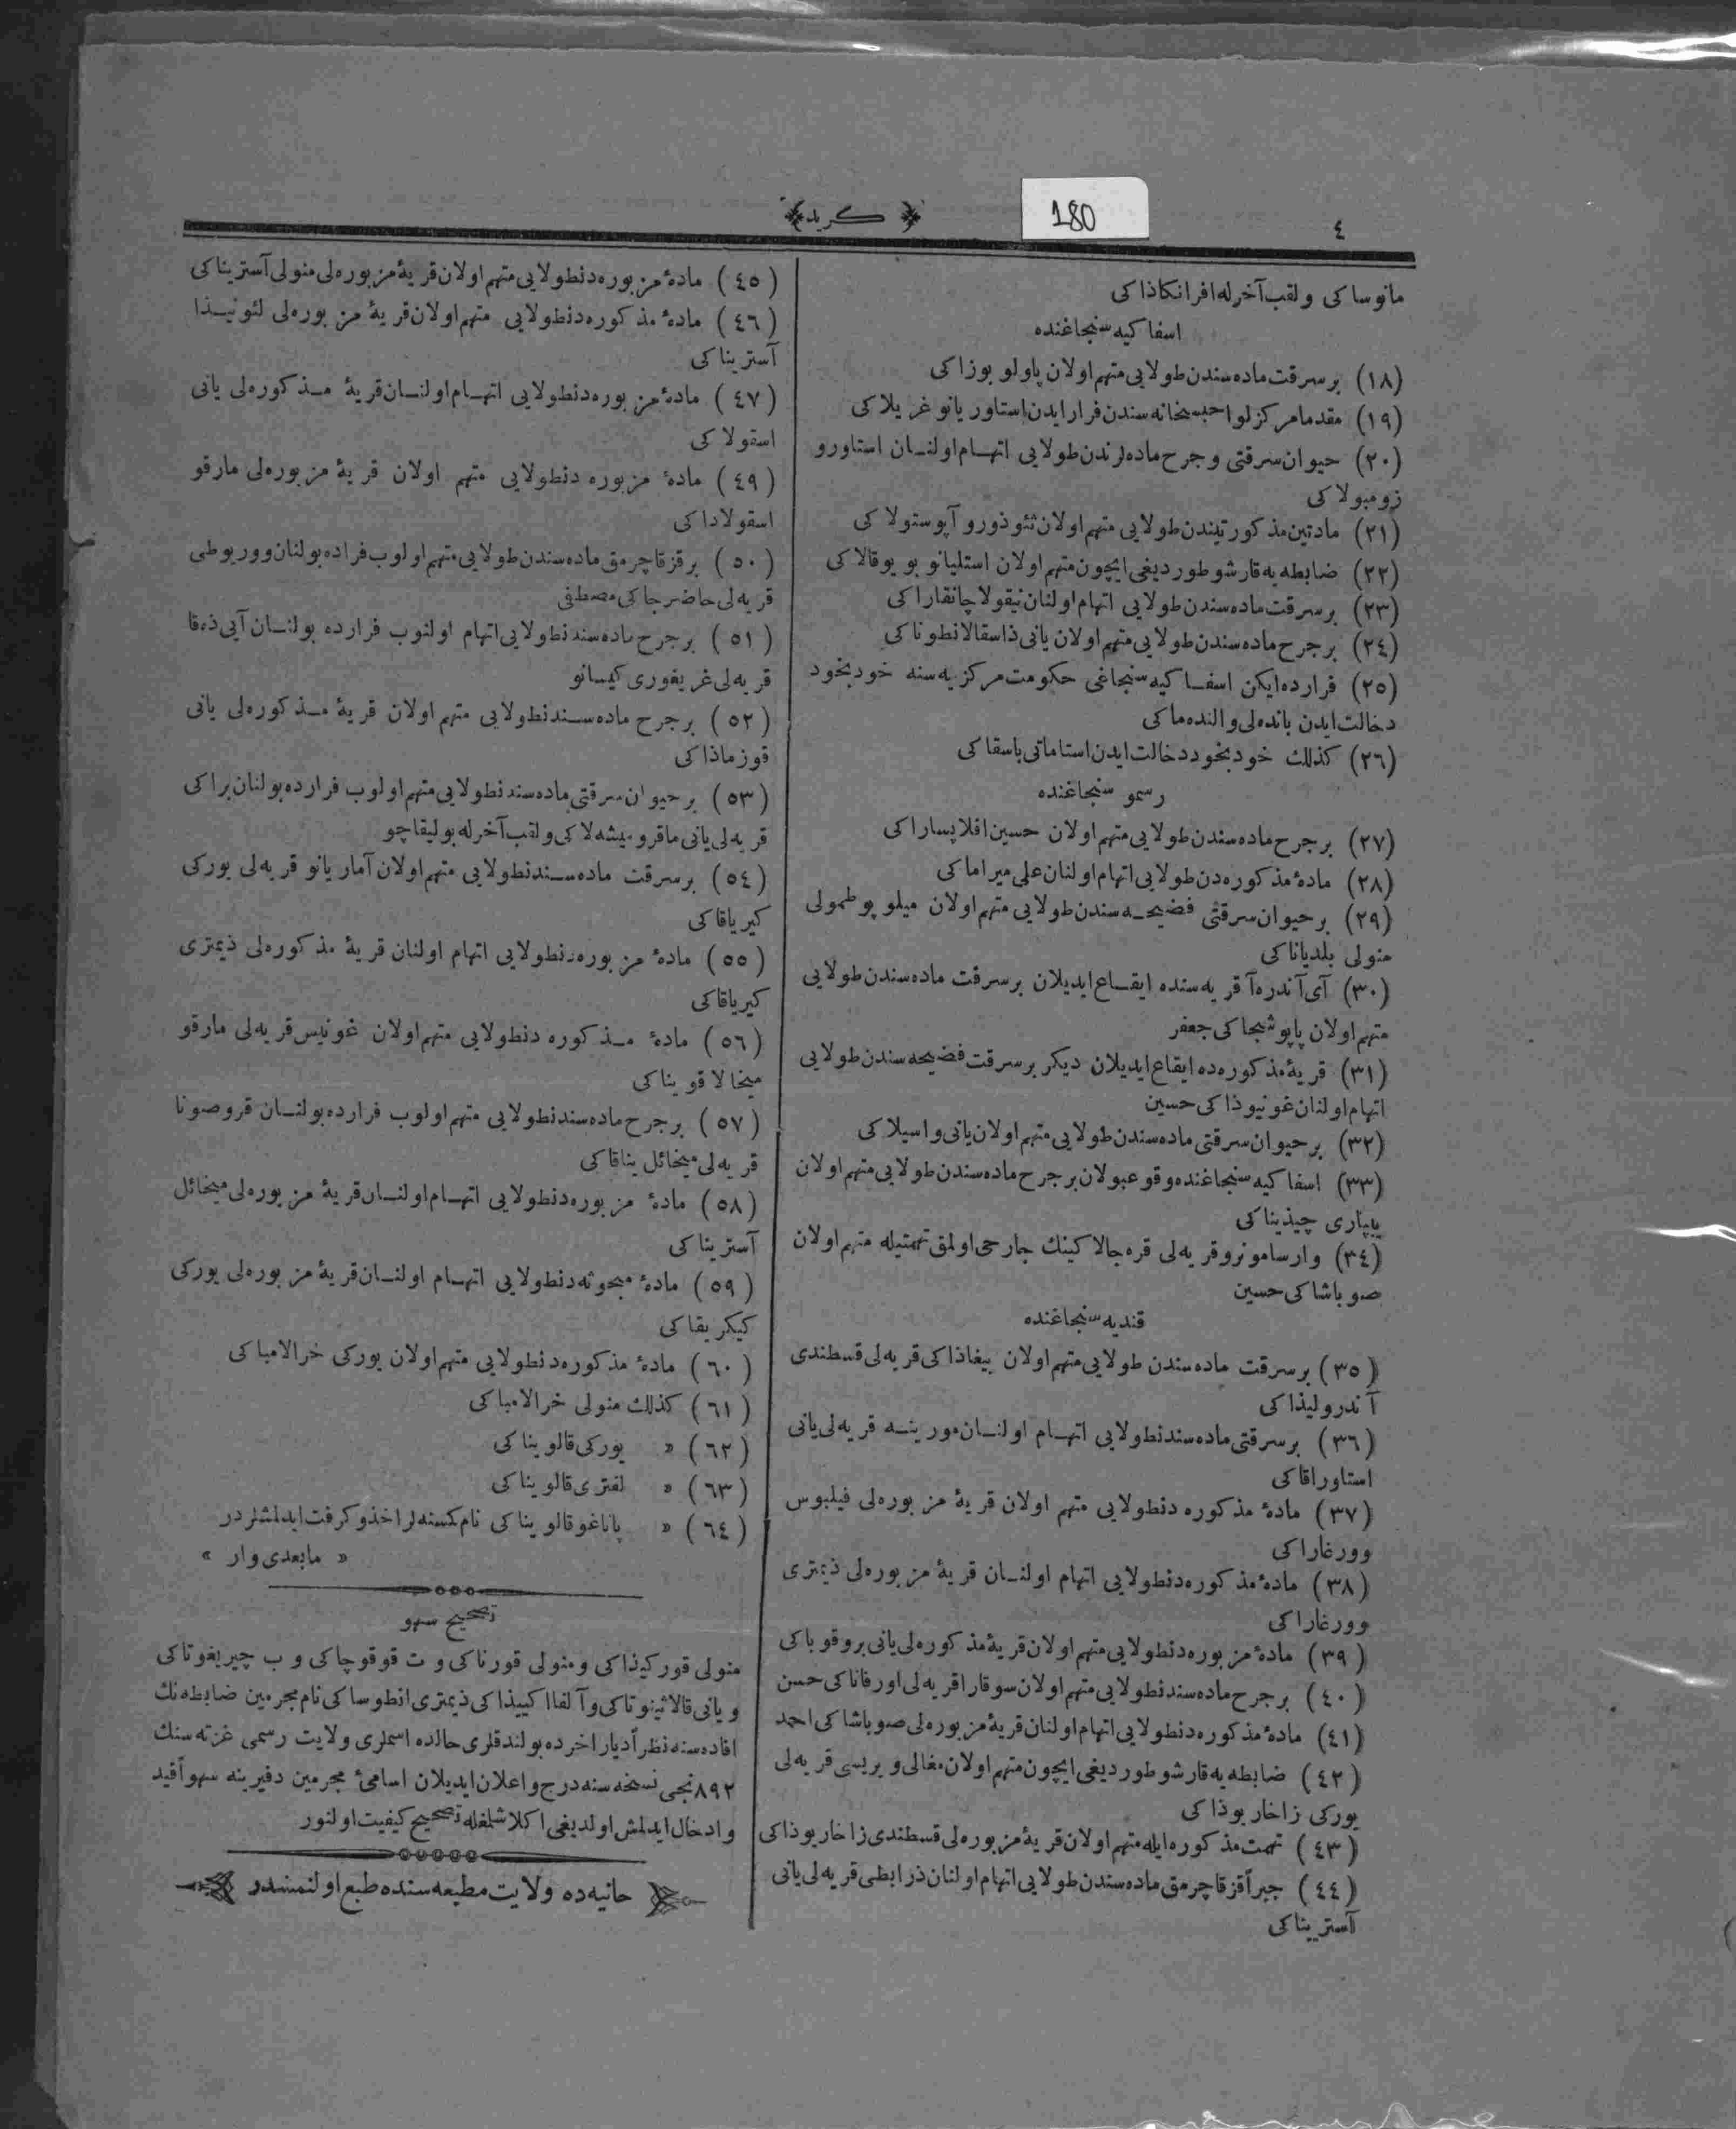 ٤
180
﴿ كريد ﴾
مانوساكى ولقب آخرله افرانكاذاكى
اسفاكيه سنجاغنده
(١٨) بر سرقت ماده سندن طولايى متهم اولان پاولو بوزاكى
(١٩) مقدما مركز لوا حبسخانه سندن فرار ايدن استاوريانو غريلاكى
(٢٠) حيوان سرقتى وجرح ماده لرندن طولايى اتهام اولنان استاورو
زومبولاكى
(٢١) مادتين مذكورتيندن طولايى متهم اولان تئوذورو آپوستولاكى
(٢٢) ضابطه يه قارشو طورديغى ايچون متهم اولان استليانو بويوقالاكى
(٢٣) بر سرقت ماده سندن طولايى اتهام اولنان نيقولا چانقاراكى
(٢٤) بر جرح ماده سندن طولايى متهم اولان يانى ذاسقالانطوناكى
(٢٥) فرارده ايكن اسفاكيه سنجاغى حكومت مركزيه سنه خودبخود
دخالت ايدن بانده لى والنده ماكى
(٢٦) كذلك خودبخود دخالت ايدن استاماتى باسقاكى
رسمو سنجاغنده
(٢٧) بر جرح ماده سندن طولايى متهم اولان حسين افلاپساراكى
(٢٨) مادهٔ مذكوره دن طولايى اتهام اولنان على ميراماكى
(٢٩) بر حيوان سرقتى فضيحه سندن طولايى متهم اولان ميلوپوطمولى
منولى بلدياناكى
(٣٠) آى آندره آ قريه سنده ايقاع ايديلان بر سرقت ماده سندن طولايى
متهم اولان پاپوشجاكى جعفر
(٣١) قريهٔ مذكوره ده ايقاع ايديلان ديكر بر سرقت فضيحه سندن طولايى
اتهام اولنان غونيوذاكى حسين
(٣٢) بر حيوان سرقتى ماده سندن طولايى متهم اولان يانى واسيلاكى
(٣٣) اسفاكيه سنجاغنده وقوعبولان بر جرح ماده سندن طولايى متهم اولان
يپارى چيذيناكى
(٣٤) وارساموترو قريه لى قره جالاكينك جارحى اولمق تهمتيله متهم اولان
صوباشاكى حسين
قنديه سنجاغنده
(٣٥) بر سرقت ماده سندن طولايى متهم اولان بيغاذاكى قريه لى قسطندى
آندروليذاكى
(٣٦) بر سرقتى ماده سندنطولايى اتهام اولنان مورينه قريه لى يانى
استاوراقاكى
(٣٧) مادهٔ مذكوره دنطولايى متهم اولان قريهٔ مزبوره لى فيليوس
وورغاراكى
(٣٨) مادهٔ مذكوره دنطولايى اتهام اولنان قريهٔ مزبوره لى ذيمترى
وورغاراكى
(٣٩) مادهٔ مزبوره دنطولايى متهم اولان قريهٔ مذكوره لى يانى بروقوباكى
(٤٠) بر جرح ماده سندنطولايى متهم اولان سوقارا قريه لى اورفاناكى حسن
(٤١) مادهٔ مذكوره دنطولايى اتهام اولنان قريهٔ مزبوره لى صوباشاكى احمد
(٤٢) ضابطه يه قارشو طورديغى ايچون متهم اولان مغالى وبريسى قريه لى
يوركى زاخاريوذاكى
(٤٣) تهمت مذكوره ايله متهم اولان قريهٔ مزبوره لى قسطندى زاخاريوذاكى
(٤٤) جبراً قز قاچرمق ماده سندن طولايى اتهام اولنان ذرابطى قريه لى يانى
آستريناكى
(٤٥) مادهٔ مزبوره دنطولايى متهم اولان قريهٔ مزبوره لى منولى آستريناكى
(٤٦) مادهٔ مذكوره دنطولايى متهم اولان قريهٔ مزبوره لى لئونيذا
آستريناكى
(٤٧) مادهٔ مزبوره دنطولايى اتهام اولنان قريهٔ مذكوره لى يانى
اسقولاكى
(٤٩) مادهٔ مزبوره دنطولايى متهم اولان قريهٔ مزبوره لى مارقو
اسقولاداكى
(٥٠) بر قز قاچرمق ماده سندن طولايى متهم اولوب فراده بولنان ووريوطى
قريه لى حاضرجاكى مصطفى
(٥١) بر جرح ماده سندنطولايى اتهام اولنوب فرارده بولنان آيى ذه قا
قريه لى غريغورى كيسانو
(٥٢) بر جرح ماده سندنطولايى متهم اولان قريهٔ مذكوره لى يانى
قوزماذاكى
(٥٣) بر حيوان سرقتى ماده سندنطولايى متهم اولوب فرارده بولنان براكى
قريه لى يانى ماقروميشه لاكى ولقب آخرله بوليقاچو
(٥٤) بر سرقت ماده سندنطولايى متهم اولان آماريانو قريه لى يوركى
كيرياقاكى
(٥٥) مادهٔ مزبوره دنطولايى اتهام اولنان قريهٔ مذكوره لى ذيمترى
كيرياقاكى
(٥٦) مادهٔ مذكوره دنطولايى متهم اولان غونيس قريه لى مارقو
ميخالاقويناكى
(٥٧) بر جرح ماده سندنطولايى متهم اولوب فرارده بولنان قروصونا
قريه لى ميخائل يناقاكى
(٥٨) مادهٔ مزبوره دنطولايى اتهام اولنان قريهٔ مزبوره لى ميخائل
آستريناكى
(٥٩) مادهٔ مبحوثه دنطولايى اتهام اولنان قريهٔ مزبوره لى يوركى
كيكريقاكى
(٦٠) مادهٔ مذكوره دنطولايى متهم اولان يوركى خرالامباكى
(٦١) كذلك منولى خرالامباكى
(٦٢) « يوركى قالويناكى
(٦٣) « لفترى قالويناكى
(٦٤) « پاناغو قالويناكى نام كسنه لر اخذ وكرفت ايدلمشلردر
« مابعدى وار »
تصحيح سهو
منولى قوركيذاكى ومنولى قورناكى و ت قوقوچاكى و ب چيربغوتاكى
ويانى قالاثينوتاكى وآلفا اكييذاكى ذيمترى انطوساكى نام مجرمين ضابطه نك
افاده سنه نظراً ديار اخرده بولندقلرى حالده اسملرى ولايت رسمى غزته سنك
٨٩٢ نجى نسخه سنه درج واعلان ايديلان اسامئ مجرمين دفيرينه سهواً قيد
وادخال ايدلمش اولديغى اكلاشلمغله تصحيح كيفيت اولنور
حانيه ده ولايت مطبعه سنده طبع اولنمشدر